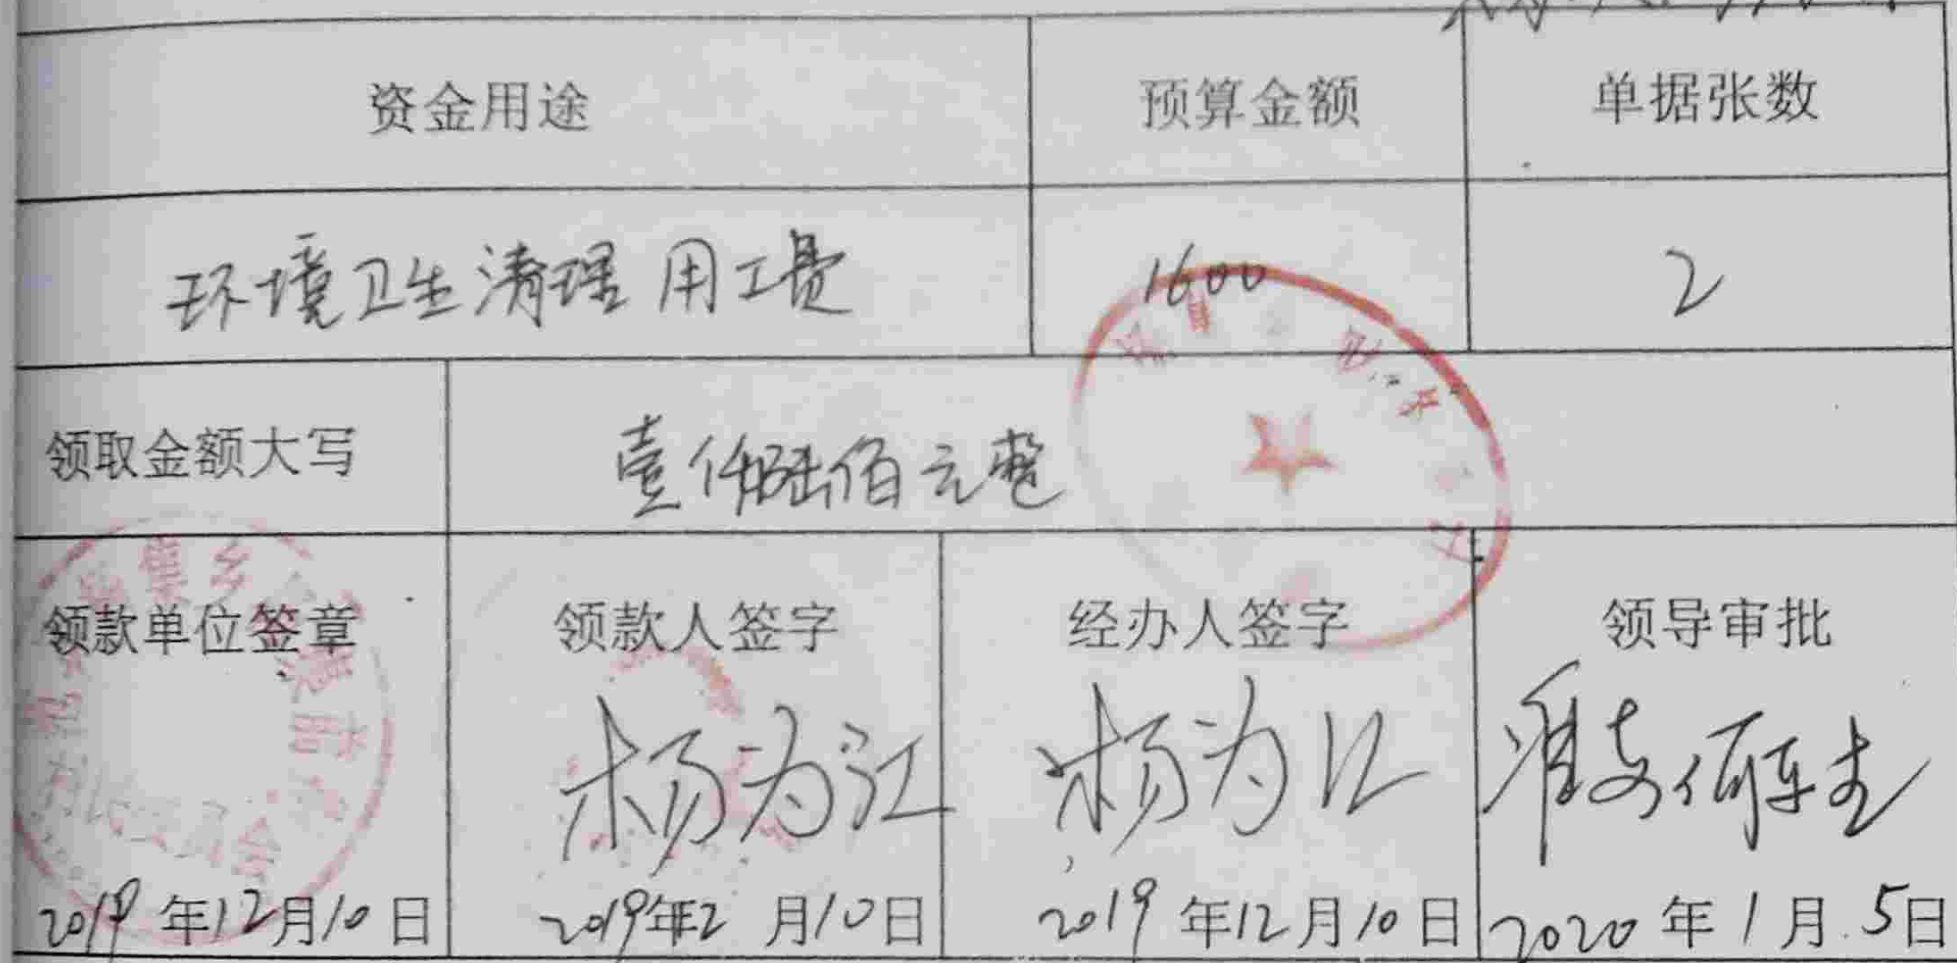 资金用途 预算金额 单据张数
环境卫生清理用工费 1600 2
领取金额大写 壹仟陆佰元整
领款单位签章 领款人签字 经办人签字 领导审批
杨为江 杨为江 准支
2019年12月10日 2019年12月10日 2019年12月10日 2020年1月5日
集乡